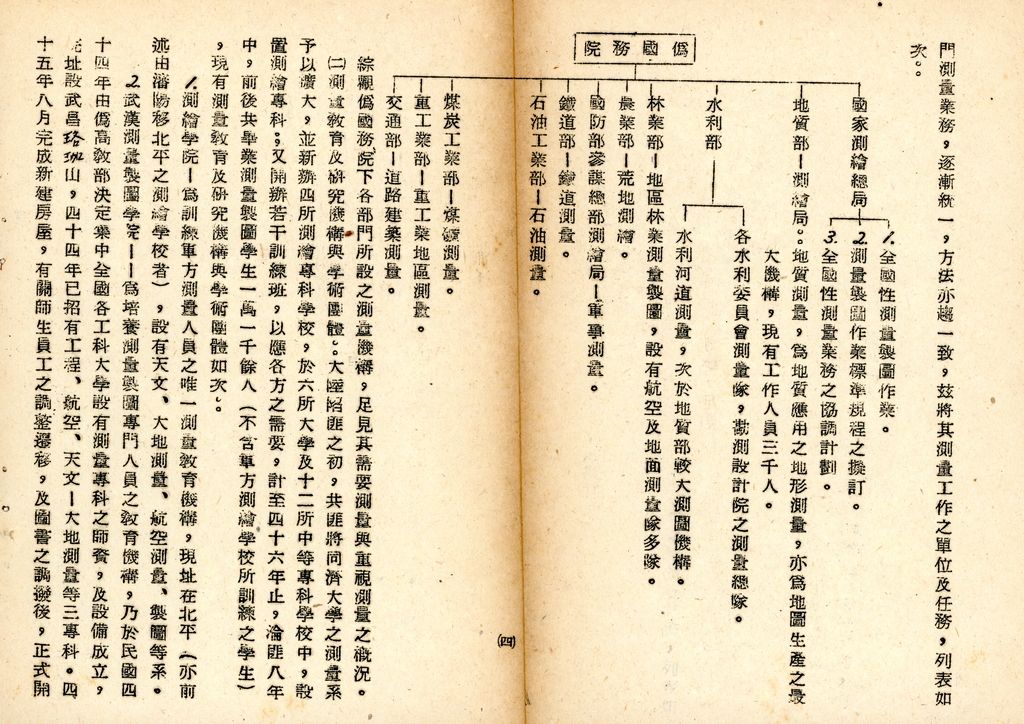 門測量業務，逐漸統一，方法亦趨一致，茲將其測量工作之單位及任務，列表如
次。。
偽國務院
國家測繪總局
1.全國性測量製圖作業。
2.測量製圖作業標準規程之擬訂。
3.全國性測量業務之協調計劃。
地質部—測繪局。。地質測量，為地質應用之地形測量，亦為地圖生產之最
大機構，現有工作人員三千人。
水利部
各水利委員會測量隊，勘測設計院之測量總隊。
水利河道測量，次於地質部較大測圖機構。
林業部—地區林業測量製圖，設有航空及地面測量隊多隊。
農業部—荒地測繪。
國防部參謀總部測繪局—軍事測量。
鐵道部—鐵道測量。
石油工業部—石油測量。
煤炭工業部—煤礦測量。
重工業部—重工業地區測量。
交通部—道路建築測量。
綜觀偽國務院下各部門所設之測量機構，足見其需要測量與重視測量之概況。
㈡測量教育及研究機構與學術團體。。大陸陷匪之初，共匪將同濟大學之測量系
予以擴大，並新辦四所測繪專科學校，於六所大學及十二所中等專科學校中，設
置測繪專科；又開辦若干訓練班，以應各方之需要，計至四十六年止，淪匪八年
中，前後共畢業測量製圖學生一萬一千餘人（不含軍方測繪學校所訓練之學生）
，現有測量教育及研究機構與學術團體如次。。
1.測繪學院—為訓練軍方測量人員之唯一測量教育機構，現址在北平（亦前
述由瀋陽移北平之測繪學校者），設有天文、大地測量、航空測量、製圖等系。
2.武漢測量製圖學院——為培養測量製圖專門人員之教育機構，乃於民國四
十四年由偽高教部決定集中全國各工科大學設有測量專科之師資，及設備成立，
院址設武昌珞珈山，四十四年已招有工程、航空、天文—大地測量等三專科。四
十五年八月完成新建房屋，有關師生員工之調整遷移，及圖書之調撥後，正式開
㈣